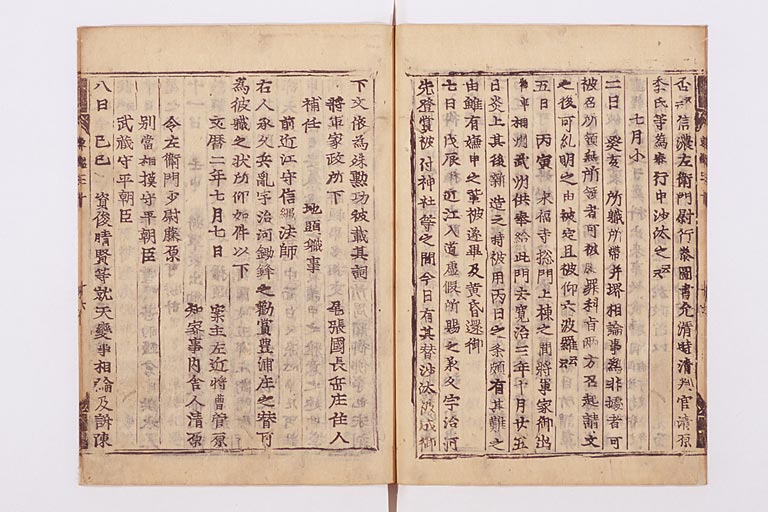 信濃左衛門尉行泰圖書允清時清判官清原
季氏等為奉行中沙汰之云々
七月小
二日 癸亥 所職所帯并堺相論事為非據者可
被召所領無所領者可被處罪科旨兩方召起請文
之後可糺明之由被定且被仰六波羅云々
五日 丙寅 永福寺惣門上棟之間將軍家御出
相州武州供奉給此門去寛治三年十月廿五
日炎上其後新造之時被用丙日之条頗有其難之
由雖有申之輩被遂畢及黄昏還御
七日 戊辰 近江入道虚假所賜之承久宇治河
先登賞被付神社等之間今日有其替沙汰被成御
下文依為殊勲功被載其詞
將軍家政所下 尾張國長岡庄住人
補任 地頭職事
前近江守信綱法師
右人承久兵乱宇治河鋤鋒之勸賞豊浦庄之替可
為彼職之状所仰如件以下
文暦二年七月七日 案主左近將曹菅原
知家事内舎人清原
令左衛門少尉藤原
別當相摸守平朝臣
武藏守平朝臣
八日 己巳 資俊晴賢等就天變事相論及訴陳